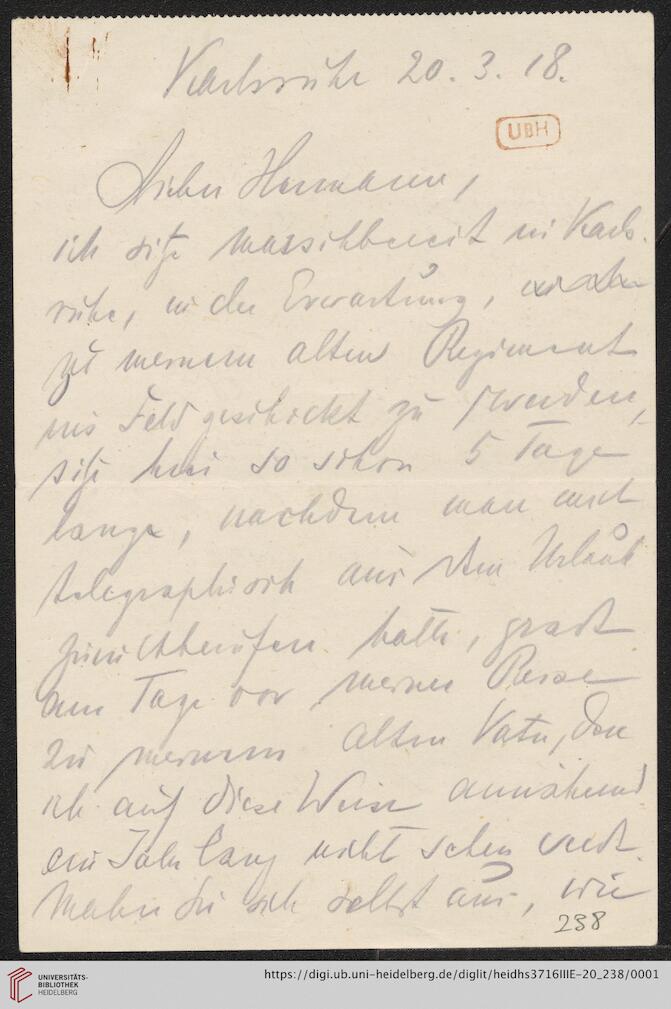 Karlsruhe 20. 3. 18.
UBH
Lieber Hermann,
ich sitze marschbereit in Karls-
ruhe, in der Erwartung,
zu meinem alten Regiment
ins Feld geschickt zu werden,
sitze hier so schon 5 Tage
lange, nachdem man mich
telegraphisch aus dem Urlaub
zurückberufen hatte, grade
am Tage vor meiner Reise
zu meinem alten Vater, den
ich auf diese Weise annähernd
ein Jahr lang nicht sehen
Malen Sie sich selbst aus, wie
238
UNIVERSITÄTS-
BIBLIOTHEK
HEIDELBERG
https://digi.ub.uni-heidelberg.de/diglit/heidhs3716IIIE-20_238/0001